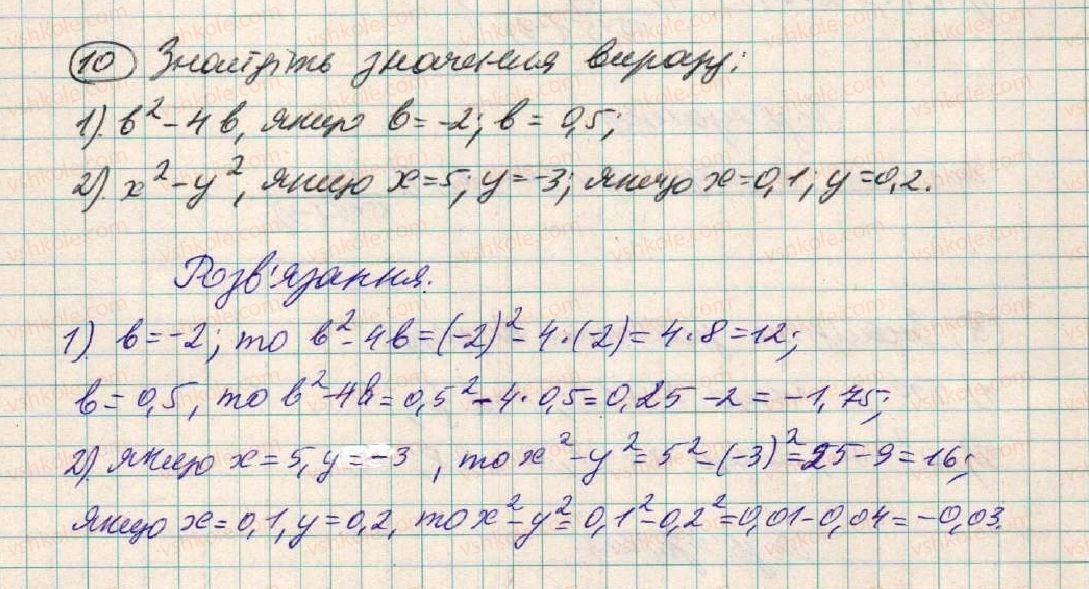 10 Знайдіть значення виразу:
1). b² - 4b, якщо b = -2; b = 0,5;
2). x² - y², якщо x = 5; y = -3; якщо x = 0,1; y = 0,2.
Розв'язання.
1). b = -2; то b² - 4b = (-2)² - 4·(-2) = 4·8 = 12;
b = 0,5, то b² - 4b = 0,5² - 4·0,5 = 0,25 - 2 = -1,75;
2). якщо x = 5, y = -3, то x² - y² = 5² - (-3)² = 25 - 9 = 16;
якщо x = 0,1, y = 0,2, то x² - y² = 0,1² - 0,2² = 0,01 - 0,04 = -0,03.